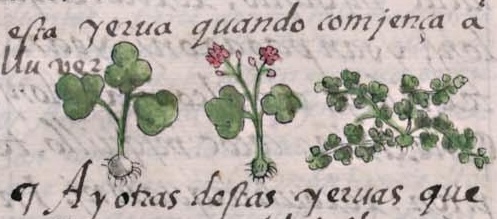 esta yerua quando comjença a
lluuer
¶ Ay otras destas yeruas que